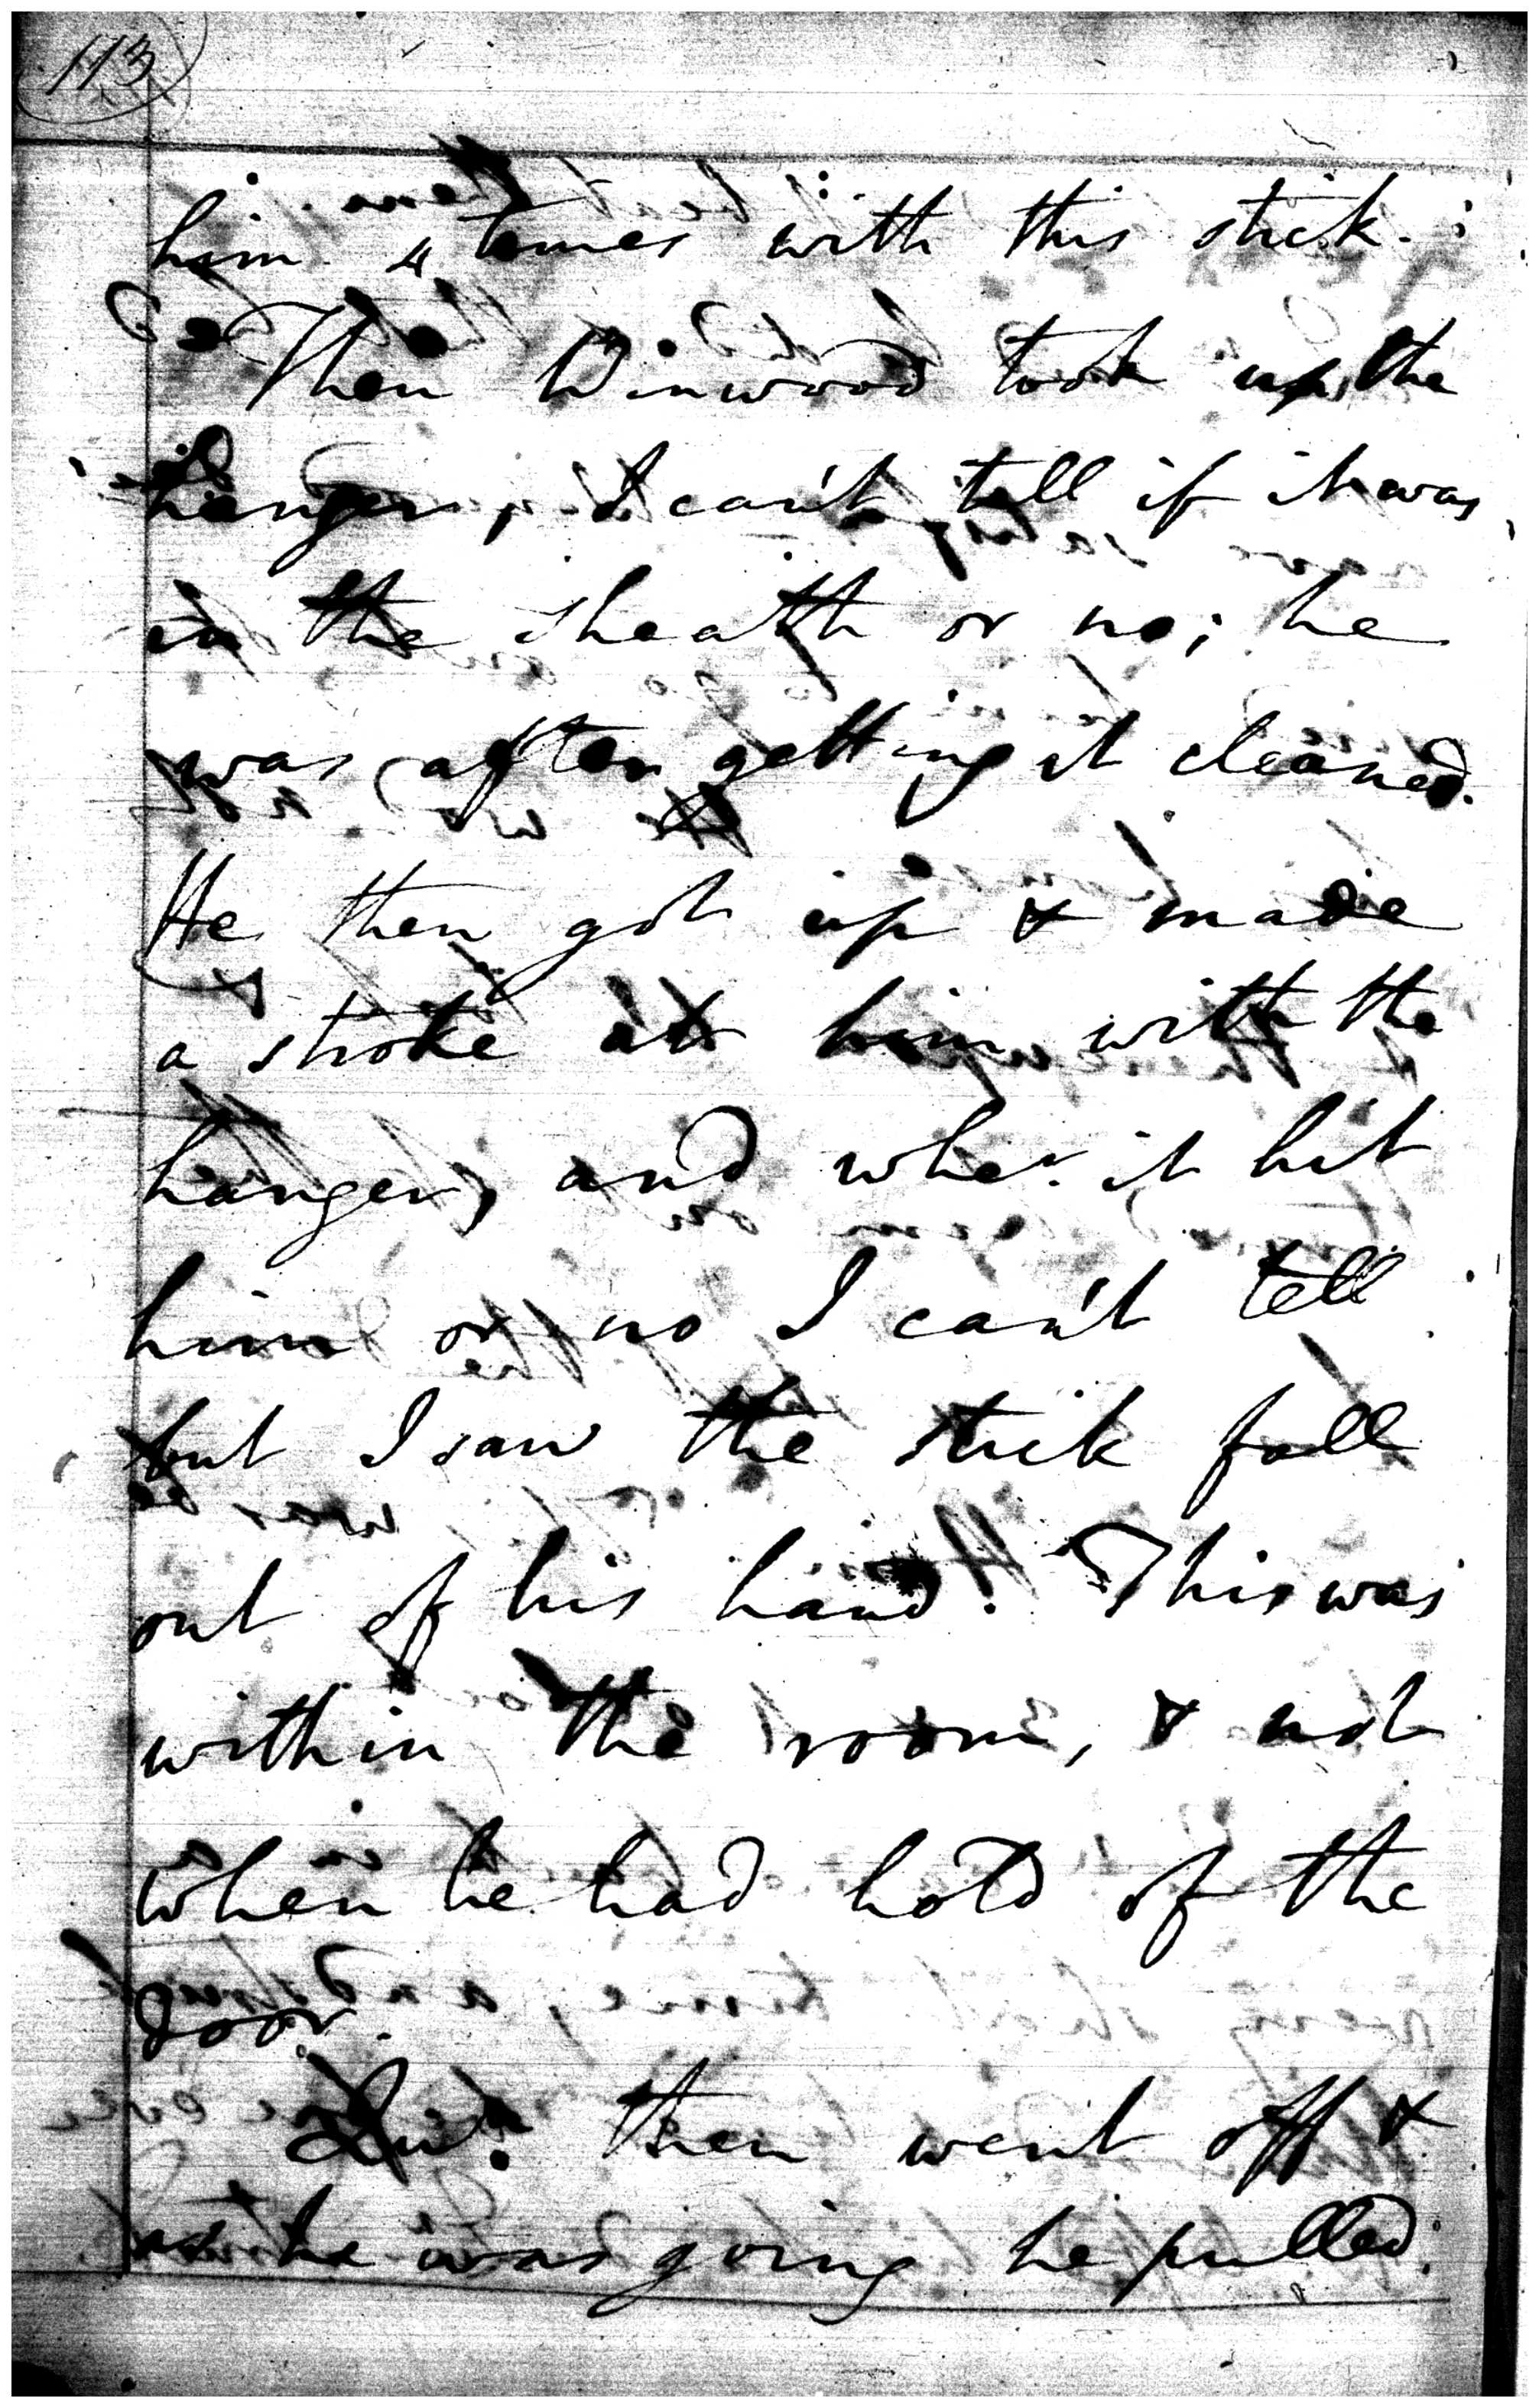 113
him 4 times with this stick.
Then Winwood took up the
hanger, I can't tell if it was
in the sheath or no; he
was after getting it cleaned.
He then got up & made
a stroke at him with the
hanger, and whe.r it hit
him or no I can't tell
but I saw the stick fall
out of his hand. This was
within the room, & not
when he had hold of the
door.
then went off &
as he was going he pulled